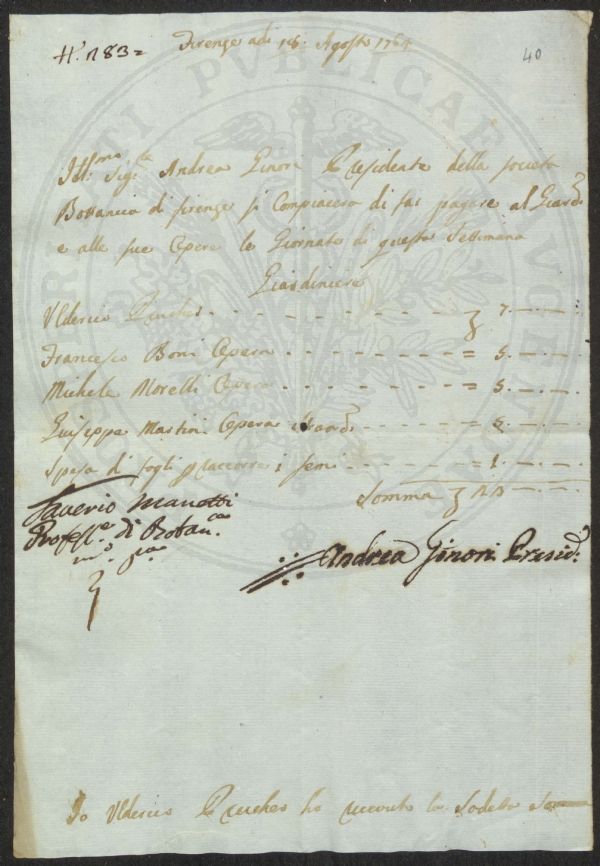 N.° 183=
Firenze adi 18: Agosto 1764
40
Ill:mo Sig:re Andrea Ginori Presidente della società
Bottanica di firenze si Compiacera di far pagare al Giard:e
e alle sue Opere le Giornate di questa Settimana
Giardiniere
Ulderico Prucher - - - - - - - - 7. - . -
Francesco Boni Opera - - - - - - - = 5. - . -
Michele Morelli Opera - - - - - - - = 5. - . -
Giuseppe Martini Opera - - - -
Spesa di fogli p raccorre i semi - - - - - - 1. - . -
Somma
Saverio Manetti
Profess:e di Botan:ca
m:o p:a
Andrea Ginori Presid:e
Io Ulderico Prucher ho riceuto la sodetta